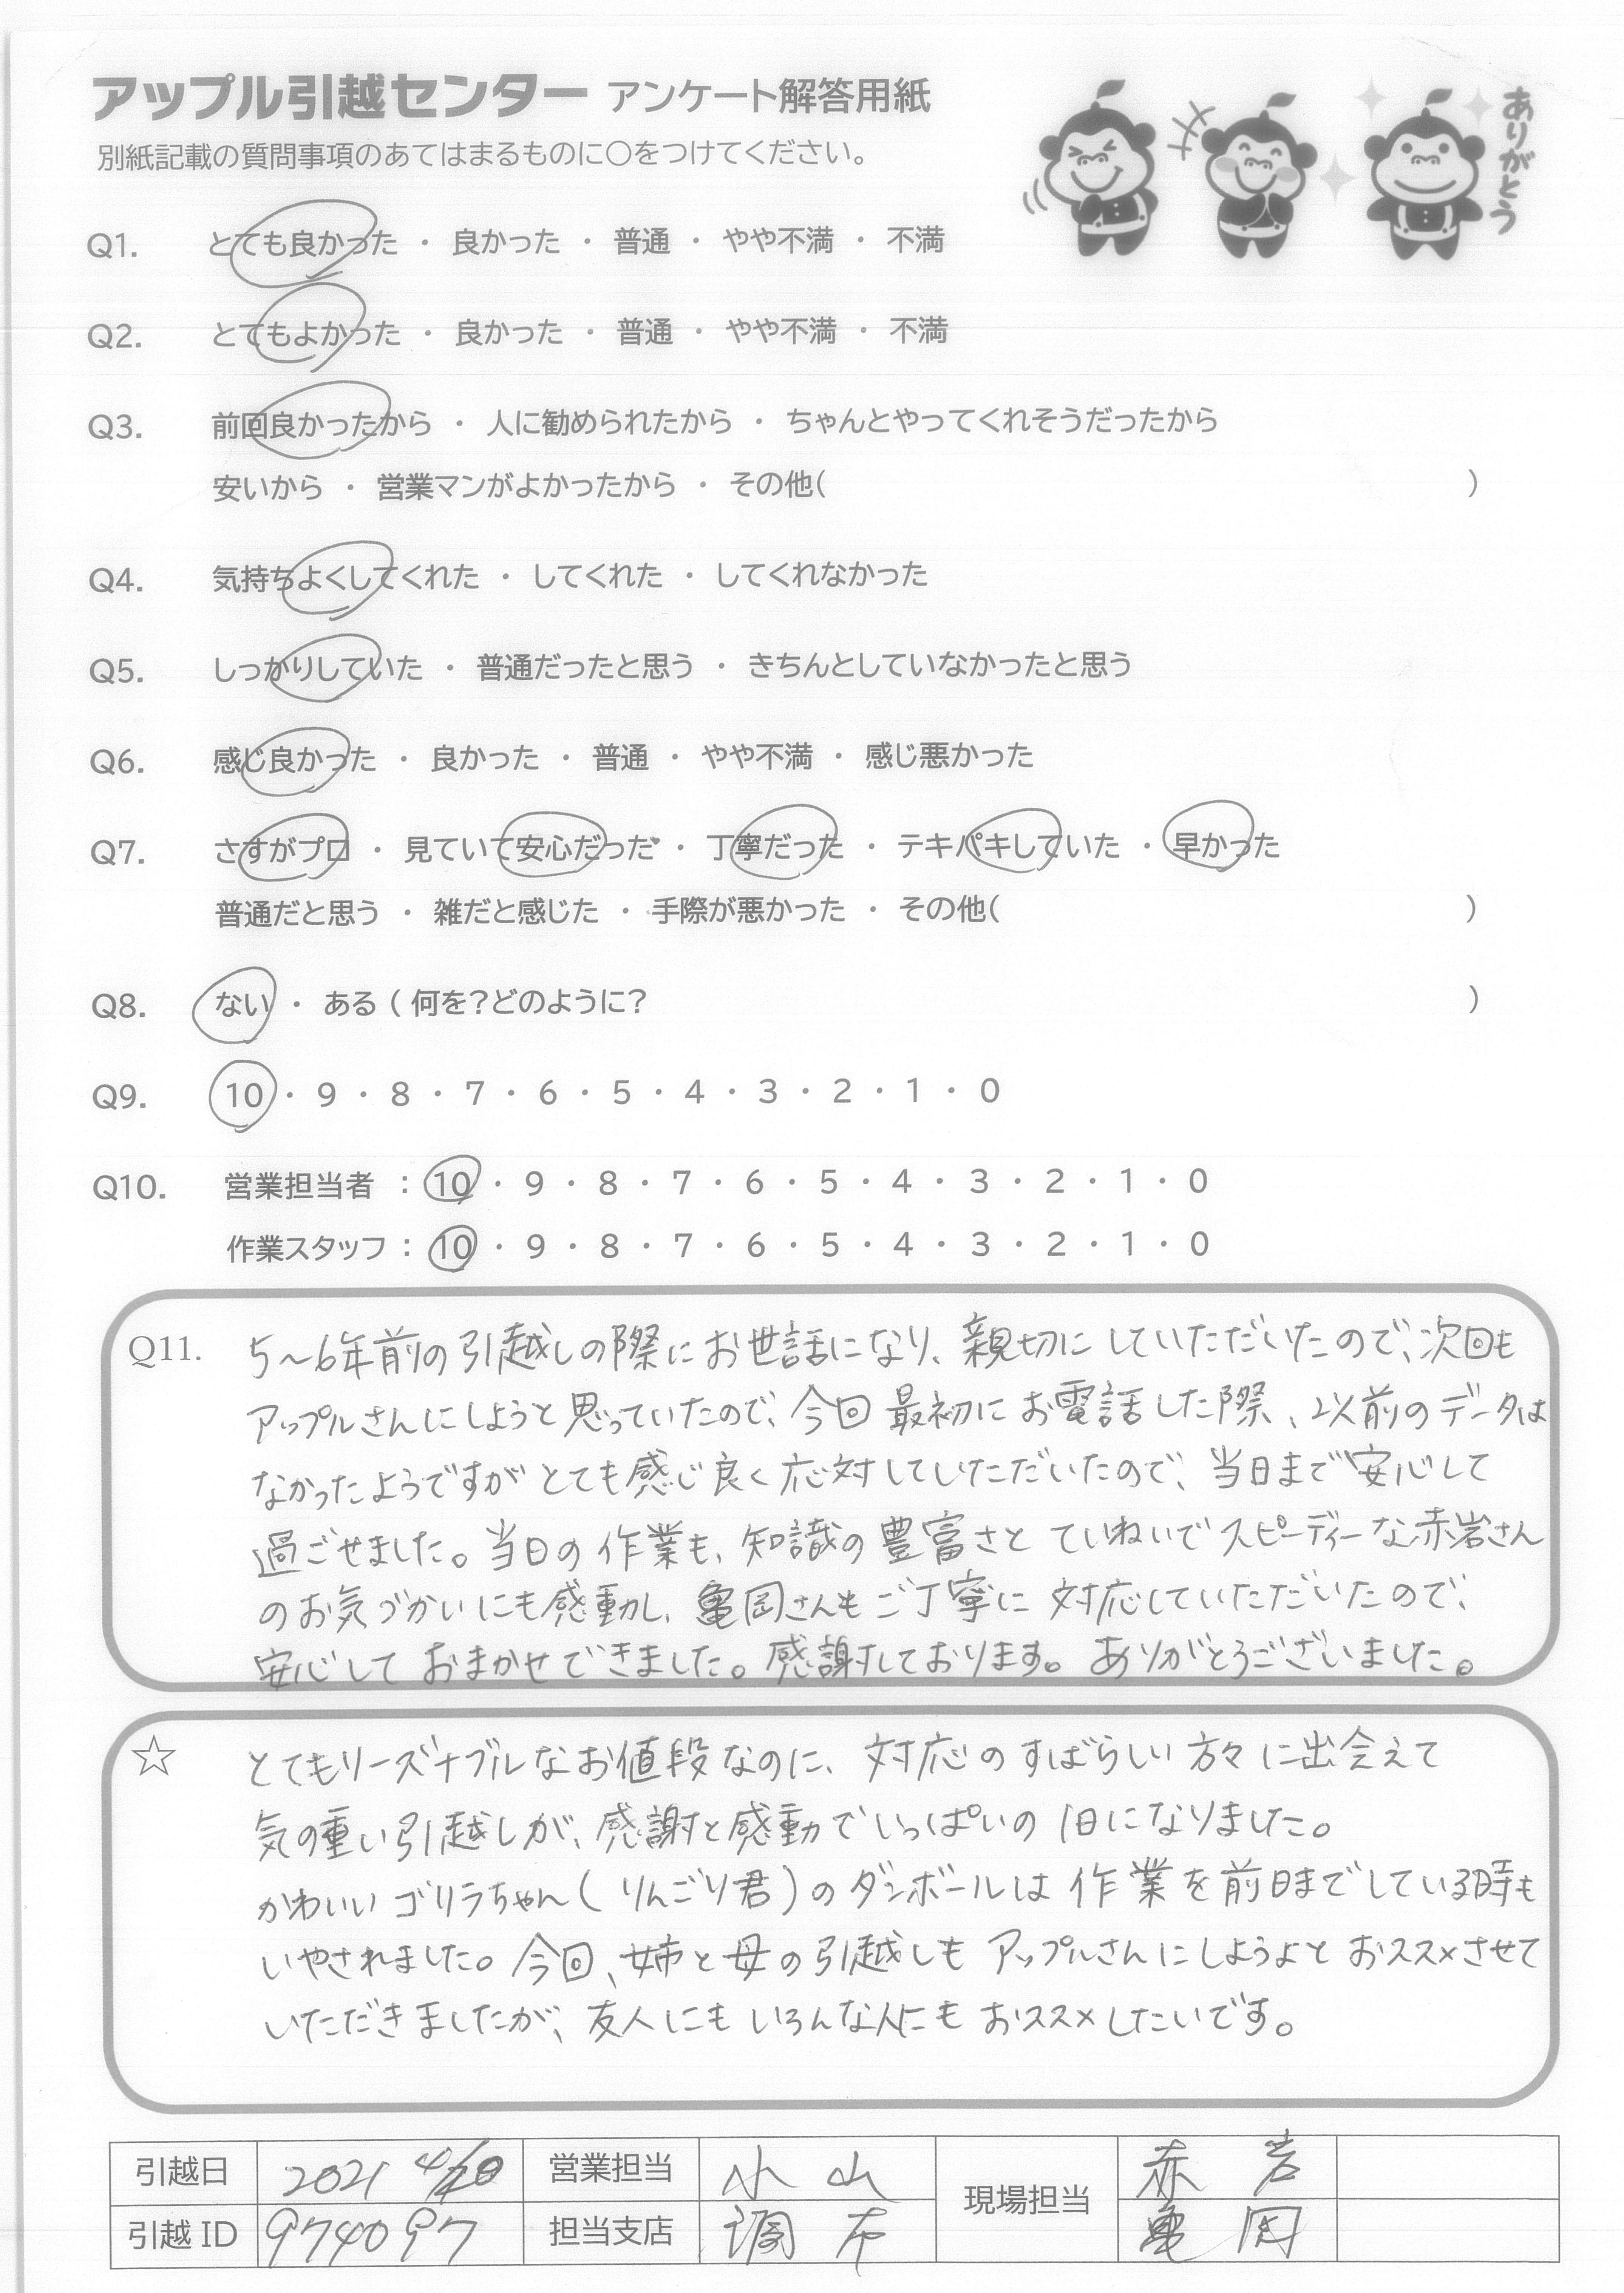 アップル引越センター アンケート解答用紙
別紙記載の質問事項のあてはまるものに○をつけてください。
ありがとう
Q1. とても良かった ・ 良かった ・ 普通 ・ やや不満 ・ 不満
Q2. とてもよかった ・ 良かった ・ 普通 ・ やや不満 ・ 不満
Q3. 前回良かったから ・ 人に勧められたから ・ ちゃんとやってくれそうだったから
安いから ・ 営業マンがよかったから ・ その他( )
Q4. 気持ちよくしてくれた ・ してくれた ・ してくれなかった
Q5. しっかりしていた ・ 普通だったと思う ・ きちんとしていなかったと思う
Q6. 感じ良かった ・ 良かった ・ 普通 ・ やや不満 ・ 感じ悪かった
Q7. さすがプロ ・ 見ていて安心だった ・ 丁寧だった ・ テキパキしていた ・ 早かった
普通だと思う ・ 雑だと感じた ・ 手際が悪かった ・ その他( )
Q8. ない ・ ある ( 何を?どのように? )
Q9. 10 ・ 9 ・ 8 ・ 7 ・ 6 ・ 5 ・ 4 ・ 3 ・ 2 ・ 1 ・ 0
Q10. 営業担当者 : 10 ・ 9 ・ 8 ・ 7 ・ 6 ・ 5 ・ 4 ・ 3 ・ 2 ・ 1 ・ 0
作業スタッフ : 10 ・ 9 ・ 8 ・ 7 ・ 6 ・ 5 ・ 4 ・ 3 ・ 2 ・ 1 ・ 0
Q11. 5～6年前の引越しの際にお世話になり、親切にしていただいたので、次回も
アップルさんにしようと思っていたので、今回最初にお電話した際、以前のデータは
なかったようですがとても感じ良く応対していただいたので、当日まで安心して
過ごせました。当日の作業も、知識の豊富さとていねいでスピーディーな赤岩さん
のお気づかいにも感動し、亀岡さんもご丁寧に対応していただいたので、
安心しておまかせできました。感謝しております。ありがとうございました。
☆ とてもリーズナブルなお値段なのに、対応のすばらしい方々に出会えて
気の重い引越しが、感謝と感動でいっぱいの1日になりました。
かわいいゴリラちゃん(りんごり君)のダンボールは作業を前日までしている時も
いやされました。今回、姉と母の引越しもアップルさんにしようよとおススメさせて
いただきましたが、友人にもいろんな人にもおススメしたいです。
引越日 2021 4/20 営業担当 小山 現場担当 赤岩
引越ID 974097 担当支店 調布 亀岡